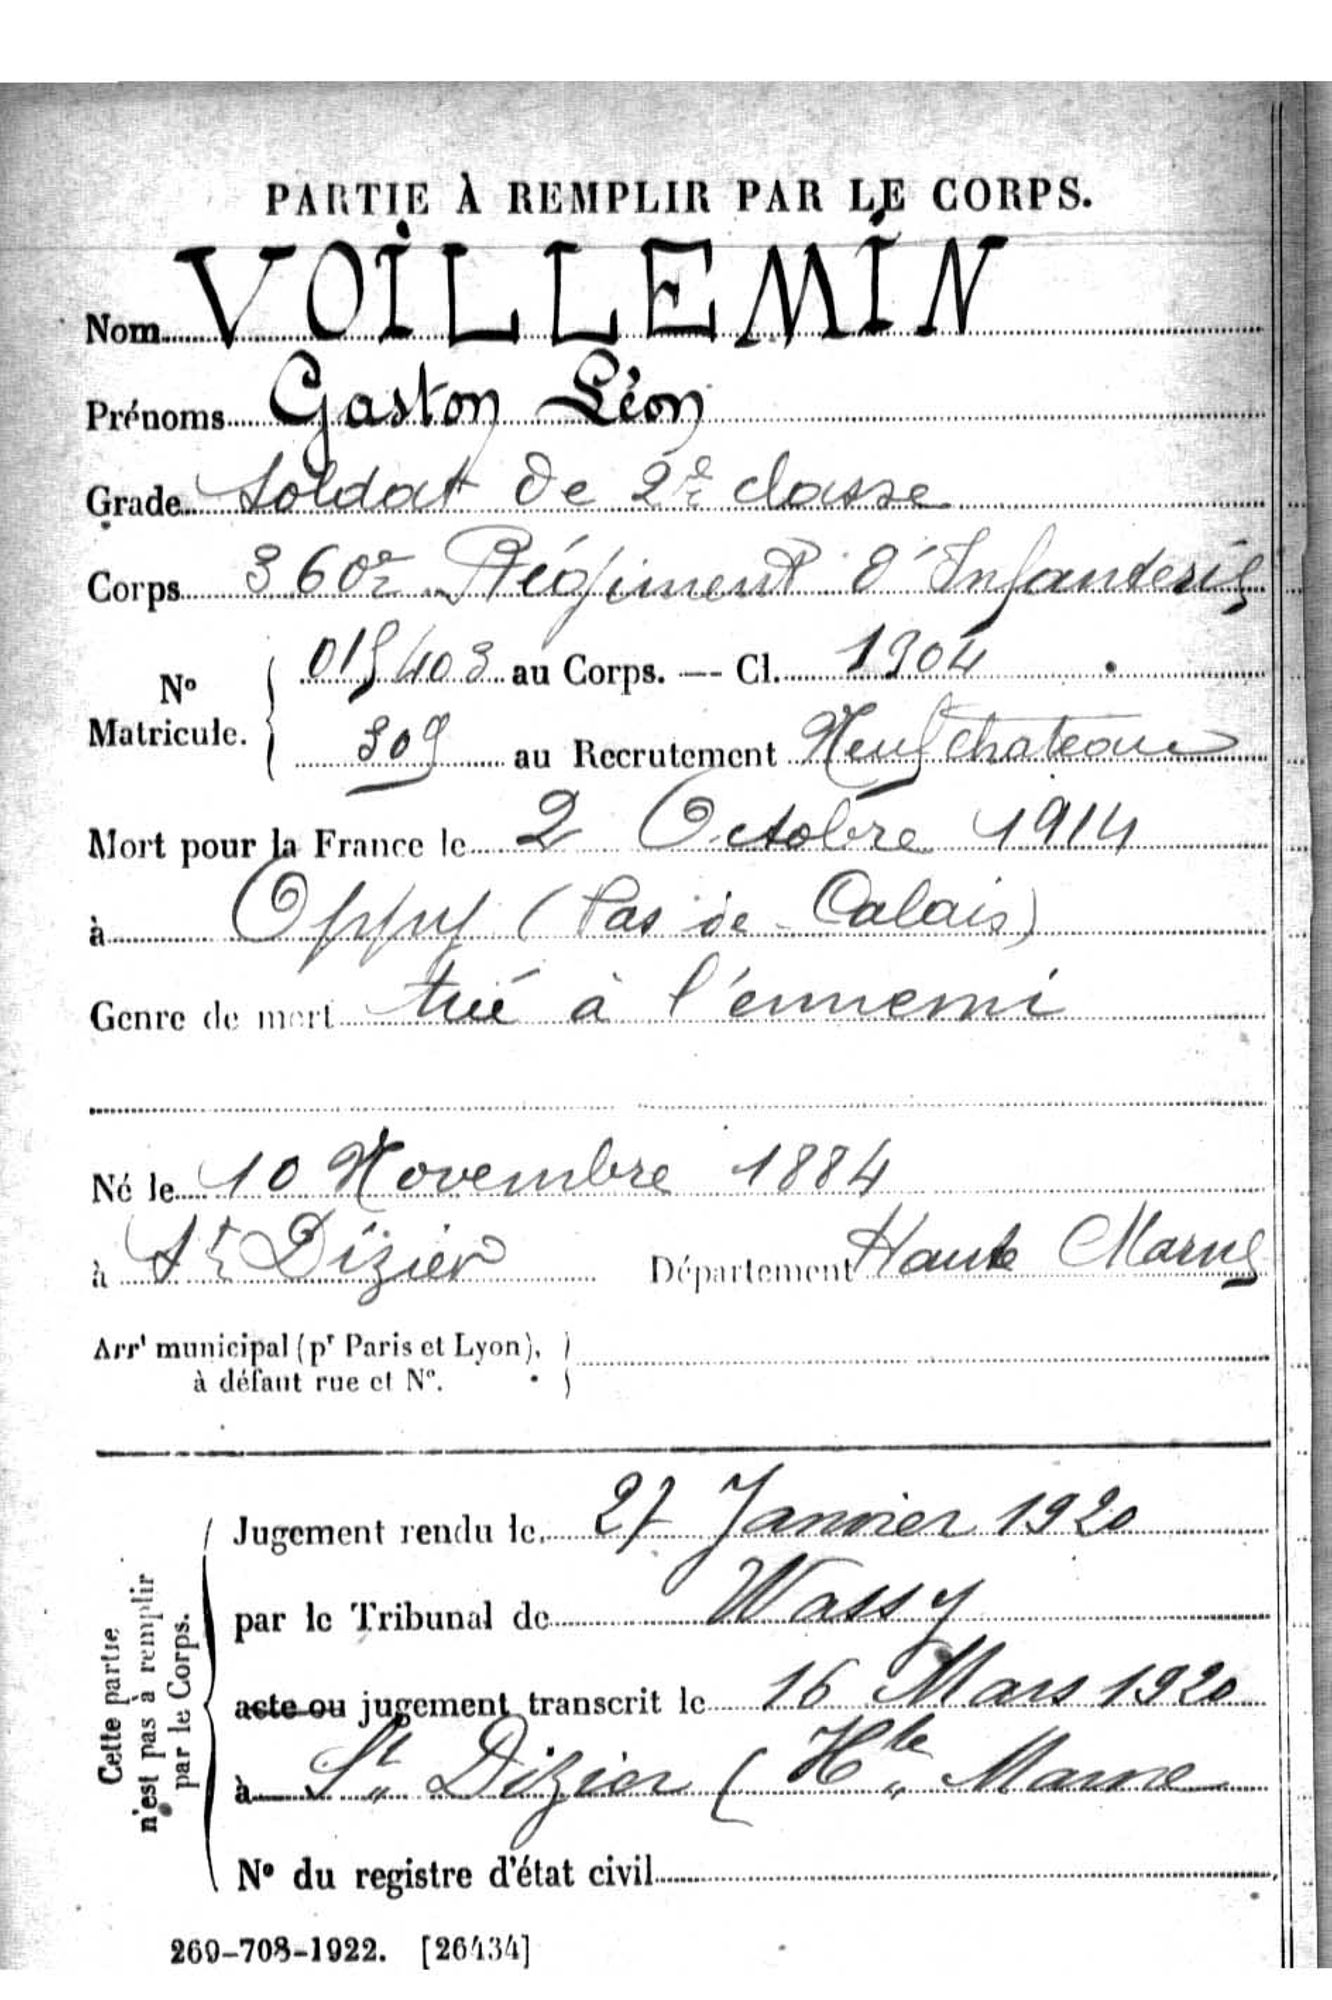 PARTIE À REMPLIR PAR LE CORPS.
Nom VOILLEMIN
Prénoms Gaston Léon
Grade Soldat de 2e classe
Corps 360e Régiment d'Infanterie
No Matricule. 015403 au Corps. — Cl. 1904
309 au Recrutement Neufchateau
Mort pour la France le 2 Octobre 1914
à Oppy (Pas de-Calais)
Genre de mort tué à l'ennemi
Né le 10 Novembre 1884
à St Dizier Département Haute Marne
Arrt municipal (pr Paris et Lyon),
à défaut rue et No.
Cette partie
n'est pas à remplir
par le Corps.
Jugement rendu le 27 Janvier 1920
par le Tribunal de Wassy
acte ou jugement transcrit le 16 Mars 1920
à St Dizier (Hte Marne
No du registre d'état civil
269-708-1922. [26434]